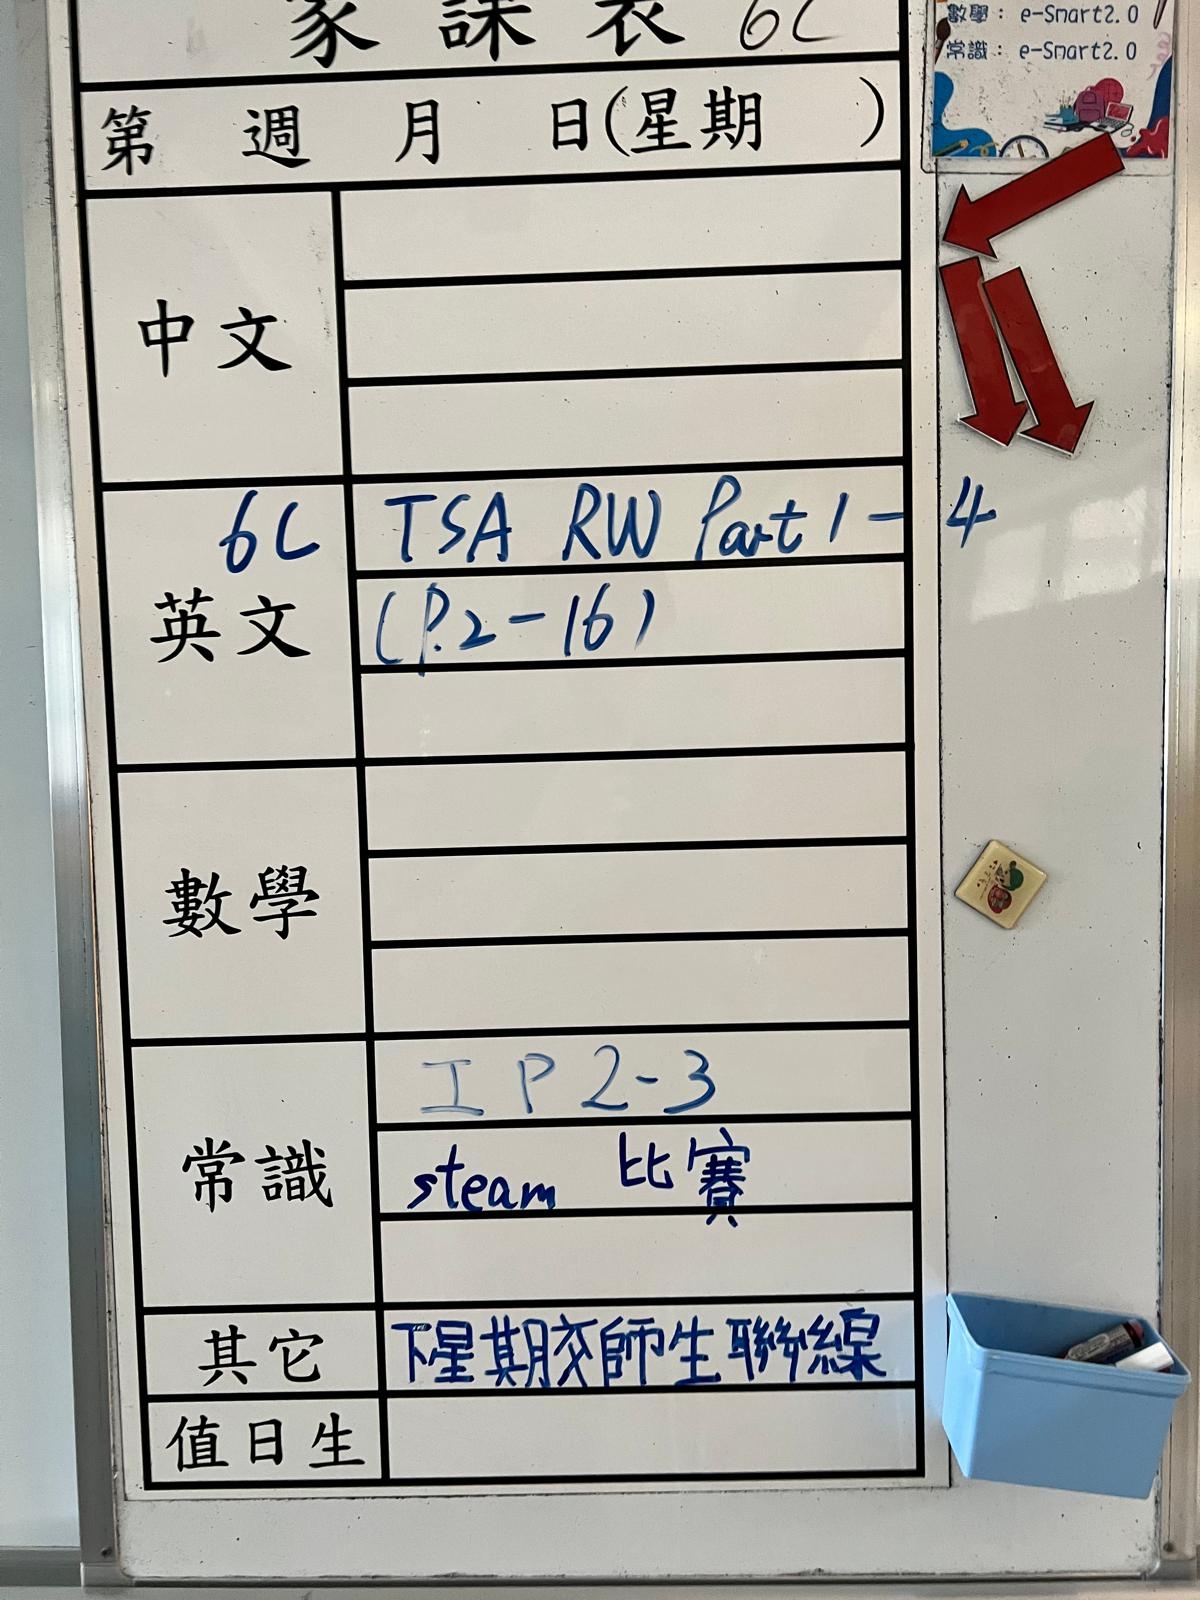 家課表 6C
數學： e-Smart2.0
常識： e-Smart2.0
第 週 月 日(星期 )
中文
6C
英文
TSA RW Part 1 - 4
(P.2-16)
數學
常識
IP 2-3
steam 比賽
其它
下星期交師生聯線
值日生